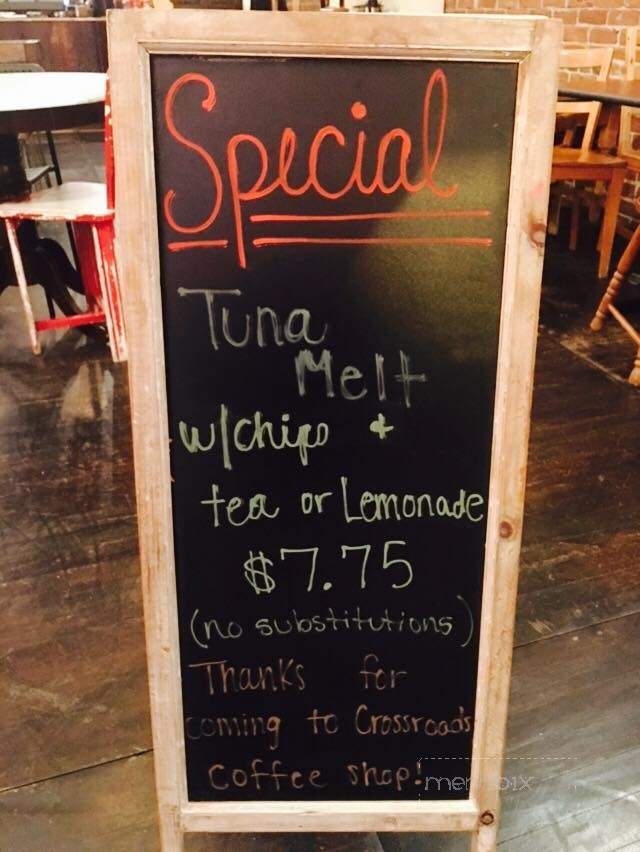 Special
Tuna
Melt
w/chips &
tea or Lemonade
$7.75
(no substitutions)
Thanks for
coming to Crossroads
coffee shop!